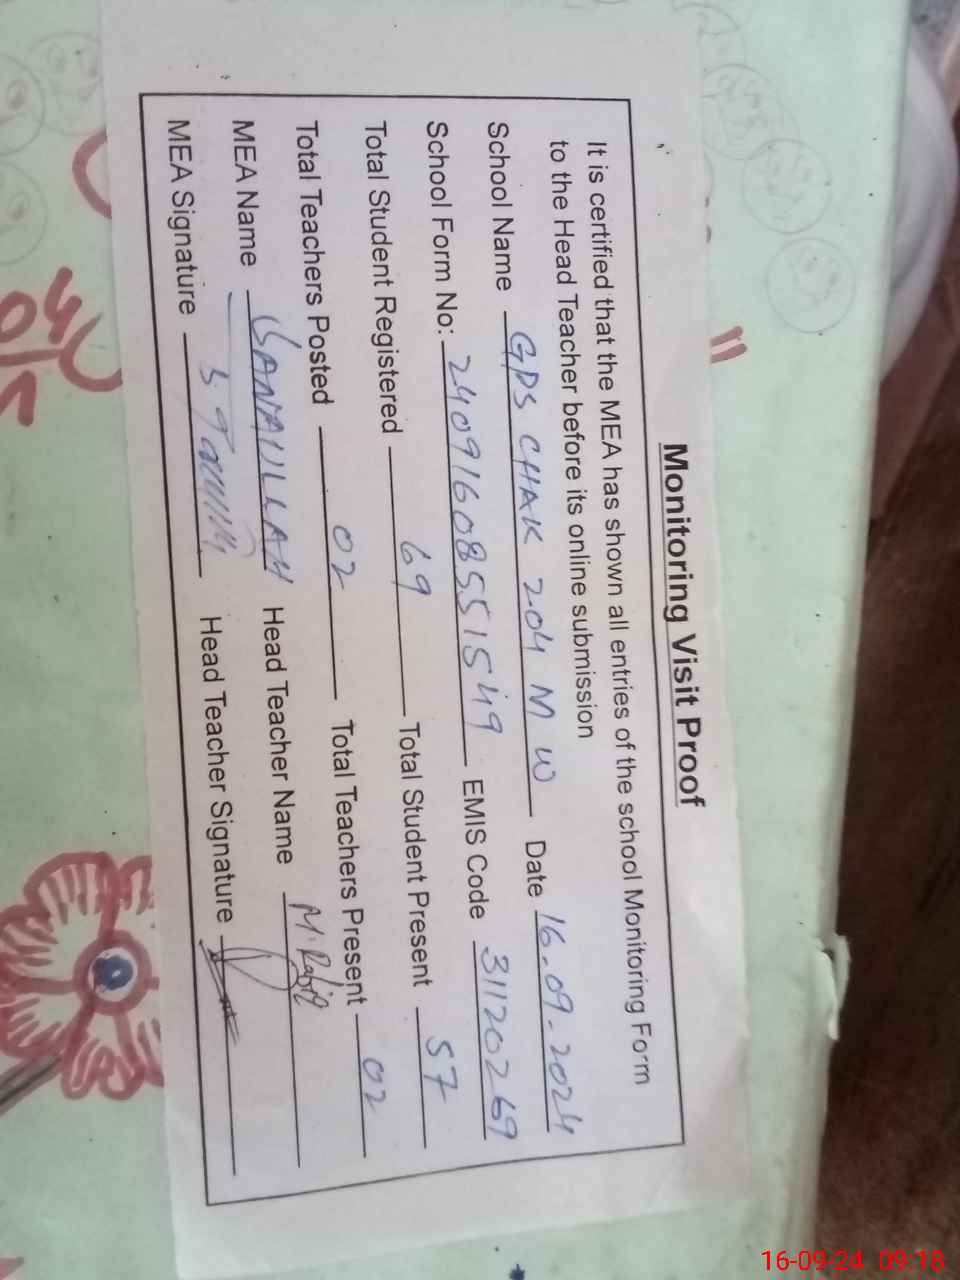 Monitoring Visit Proof
It is certified that the MEA has shown all entries of the school Monitoring Form
to the Head Teacher before its online submission
School Name GPS CHAK 204 M W Date 16-09-2024
School Form No: 24091608551549 EMIS Code 31120269
Total Student Registered 69 Total Student Present 57
Total Teachers Posted 02 Total Teachers Present 02
MEA Name SANAULLAH Head Teacher Name M. Rafiq
MEA Signature Head Teacher Signature
16-09-24 09:18